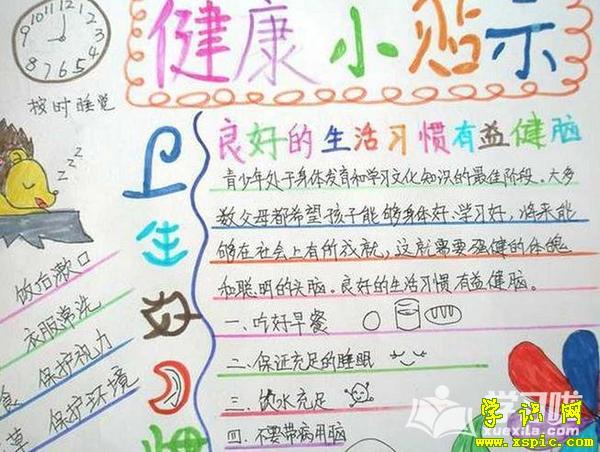 健康小贴示
12
11
1
10
2
9
3
8
4
7
6
5
按时睡觉
zzz
卫生好习惯
饭后漱口
衣服常洗
保护视力
保护环境
良好的生活习惯有益健脑
青少年处于身体发育和学习文化知识的最佳阶段。大多
数父母都希望孩子能够身体好、学习好，将来能
够在社会上有所成就，这就需要强健的体魄
和聪明的头脑。良好的生活习惯有益健脑。
一、吃好早餐
二、保证充足的睡眠
三、饮水充足
四、不要带病用脑
学习啦
xuexila.com
学识网
www.xspic.com